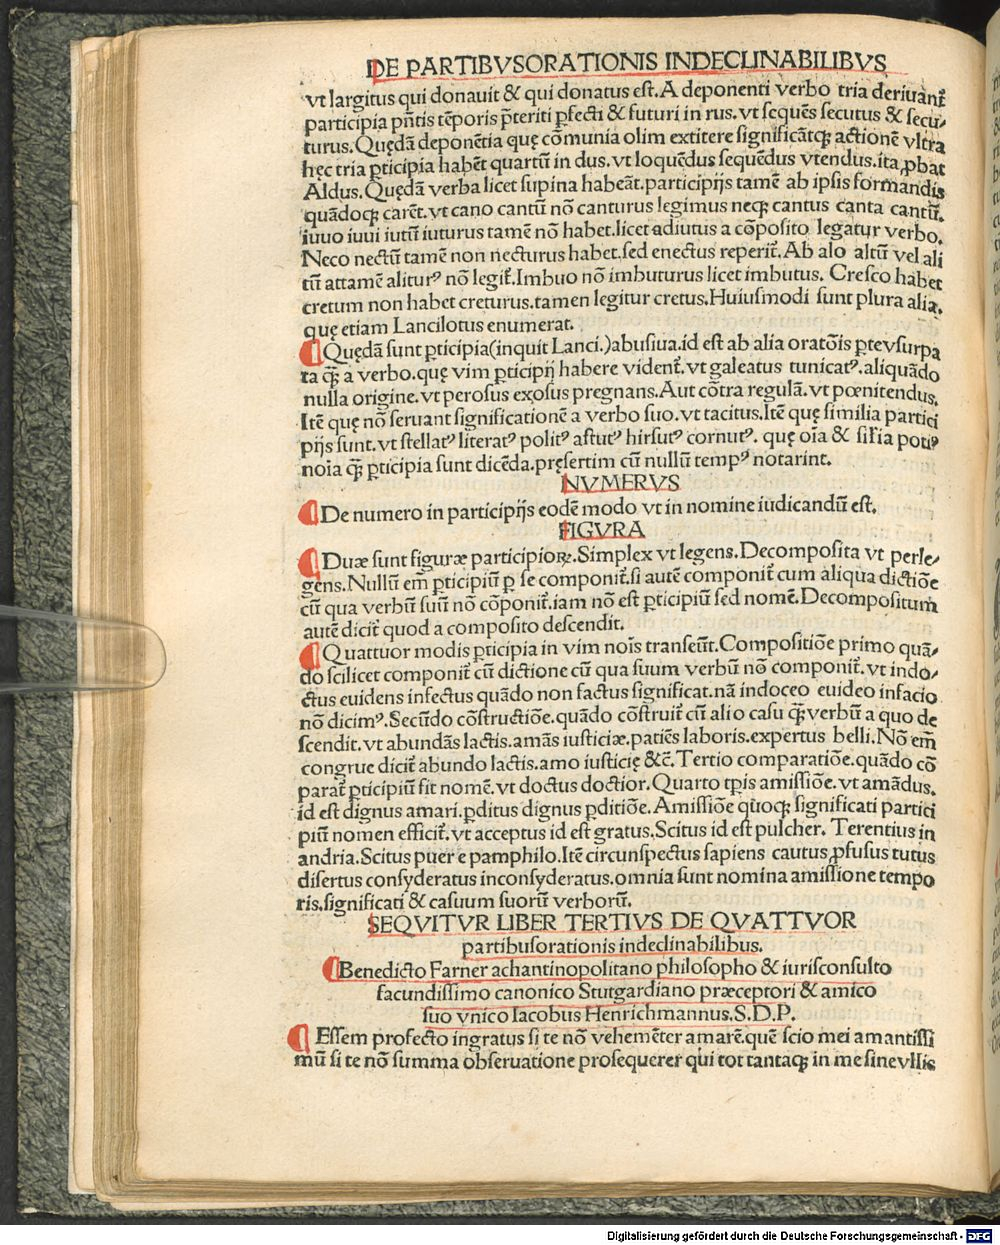 DE PARTIBVSORATIONIS INDECLINABILIBVS
vt largitus qui donauit & qui donatus est. A deponenti verbo tria deriuant̃
participia pñtis tẽporis p̃teriti ꝑfecti & futuri in rus. vt sequẽs secutus & secu/
turus. Quędã deponẽtia quę cõmunia olim extitere significãtqꝫ actionẽ vltra
hęc tria ꝑticipia habẽt quartũ in dus. vt loquẽdus sequẽdus vtendus. ita ꝓbat
Aldus. Quędã verba licet supina habeãt. participijs tamẽ ab ipsis formandis
quãdoqꝫ carẽt. vt cano cantũ nõ canturus legimus neqꝫ cantus canta cantũ.
iuuo iuui iutũ iuturus tamẽ nõ habet. licet adiutus a cõposito legatur verbo.
Neco nectũ tamẽ non necturus habet. sed enectus reperit̃. Ab alo altũ vel ali
tũ attamẽ aliturꝰ nõ legit̃. Imbuo nõ imbuturus licet imbutus. Cresco habet
cretum non habet creturus. tamen legitur cretus. Huiusmodi sunt plura alia.
quę etiam Lancilotus enumerat.
Quędã sunt ꝑticipia (inquit Lanci.) abusiua. id est ab alia oratõis ꝑte vsurpa
ta qꝫ̃ a verbo. quę vim ꝑticipij habere vident̃. vt galeatus tunicatꝰ. aliquãdo
nulla origine. vt perosus exosus pregnans. Aut cõtra regulã. vt pœnitendus.
Itẽ quę nõ seruant significationẽ a verbo suo. vt tacitus. Itẽ quę similia partici
pijs sunt. vt stellatꝰ literatꝰ politꝰ astutꝰ hirsutꝰ cornutꝰ. quę oĩa & sił̃ia potiꝰ
noĩa qꝫ̃ ꝑticipia sunt dicẽda. pręsertim cũ nullũ tempꝰ notarint.
NVMERVS
De numero in participijs eodẽ modo vt in nomine iudicandũ est.
FIGVRA
Duæ sunt figuræ participioꝝ. Simplex vt legens. Decomposita vt perle/
gens. Nullũ em̃ ꝑticipiũ ꝑ se componit̃. si autẽ componit̃ cum aliqua dictiõe
cũ qua verbũ suũ nõ cõponit̃. iam nõ est ꝑticipiũ sed nomẽ. Decompositum
autẽ dicit̃ quod a composito descendit.
Quattuor modis ꝑticipia in vim noĩs transeũt. Compositiõe primo quã/
do scilicet componit̃ cũ dictione cũ qua suum verbũ nõ componit̃. vt indo/
ctus euidens infectus quãdo non factus significat. nã indoceo euideo infacio
nõ dicimꝰ. Secũdo cõstructiõe. quãdo cõstruit̃ cũ alio casu qꝫ̃ verbũ a quo de
scendit. vt abundãs lactis. amãs iusticiæ. patiẽs laboris. expertus belli. Nõ em̃
congrue dicit̃ abundo lactis. amo iusticię &c̃. Tertio comparatiõe. quãdo cõ
parat̃ ꝑticipiũ fit nomẽ. vt doctus doctior. Quarto tp̃is amissiõe. vt amãdus.
id est dignus amari. ꝑditus dignus ꝑditiõe. Amissiõe quoqꝫ significati partici
piũ nomen efficit̃. vt acceptus id est gratus. Scitus id est pulcher. Terentius in
andria. Scitus puer e pamphilo. Itẽ circunspectus sapiens cautus ꝓfusus tutus
disertus consyderatus inconsyderatus. omnia sunt nomina amissione tempo
ris. significati & casuum suorũ verborũ.
SEQVITVR LIBER TERTIVS DE QVATTVOR
partibusorationis indeclinabilibus.
Benedicto Farner achantinopolitano philosopho & iurisconsulto
facundissimo canonico Stutgardiano præceptori & amico
suo vnico Iacobus Henrichmannus. S. D. P.
Essem profecto ingratus si te nõ vehemẽter amarẽ. quẽ scio mei amantissi
mũ si te nõ summa obseruatione prosequerer qui tot tantaqꝫ in me sine vllis
Digitalisierung gefördert durch die Deutsche Forschungsgemeinschaft - DFG